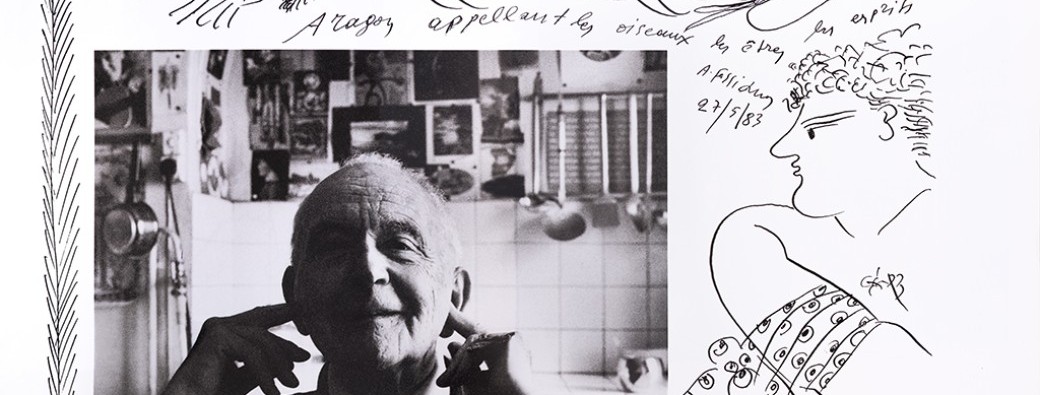 Aragon appellant les oiseaux les êtres les esprits
A. Fassianos
27/5/83
83